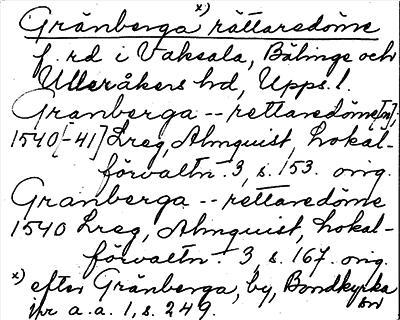 x)
Gränberga rättaredöme
f. rd i Vaksala, Bälinge och
Ulleråkers hd, Upps. l.
Granberga -- rettaredöme[n],
1540[-41] Lreg, Almquist, Lokal-
förvaltn. 3, s. 153. orig.
Granberga -- rettaredöme
1540 Lreg, Almquist, Lokal-
förvaltn. 3, s. 167. orig.
x) efter Gränberga, by, Bondkyrka
sn
jfr a.a. 1, s. 249.